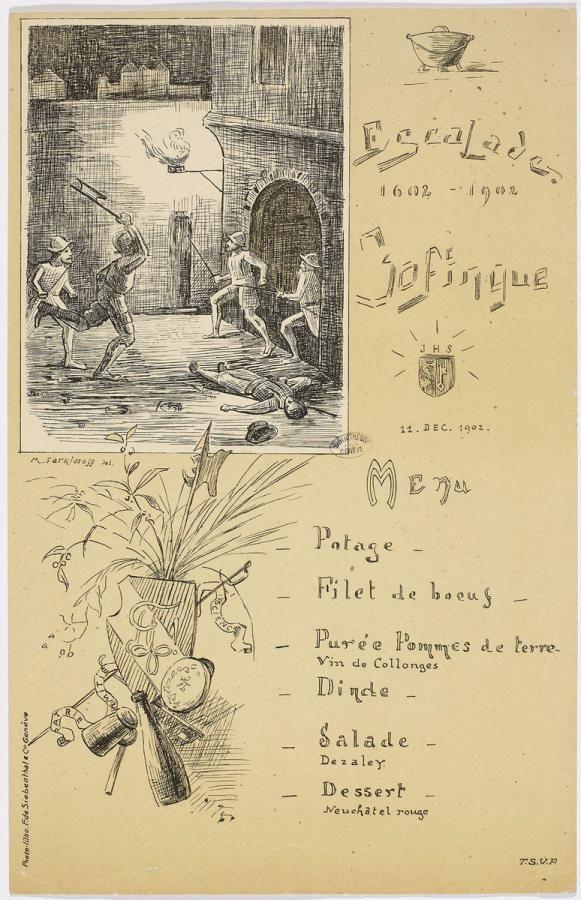 Escalade.
1602 - 1902
Zofingue
JHS
11. DEC. 1902.
BIBLIOTHÈQUE
GENÈVE
M. Sarkissoff del.
Menu
– Potage –
– Filet de boeuf –
– Purée Pommes de terre-
Vin de Collonges
– Dinde –
– Salade –
Dezaley
– Dessert –
Neuchâtel rouge
PATRIE
Photo-litho. F. de Siebenthal & Cie Genève
T.S.V.P.